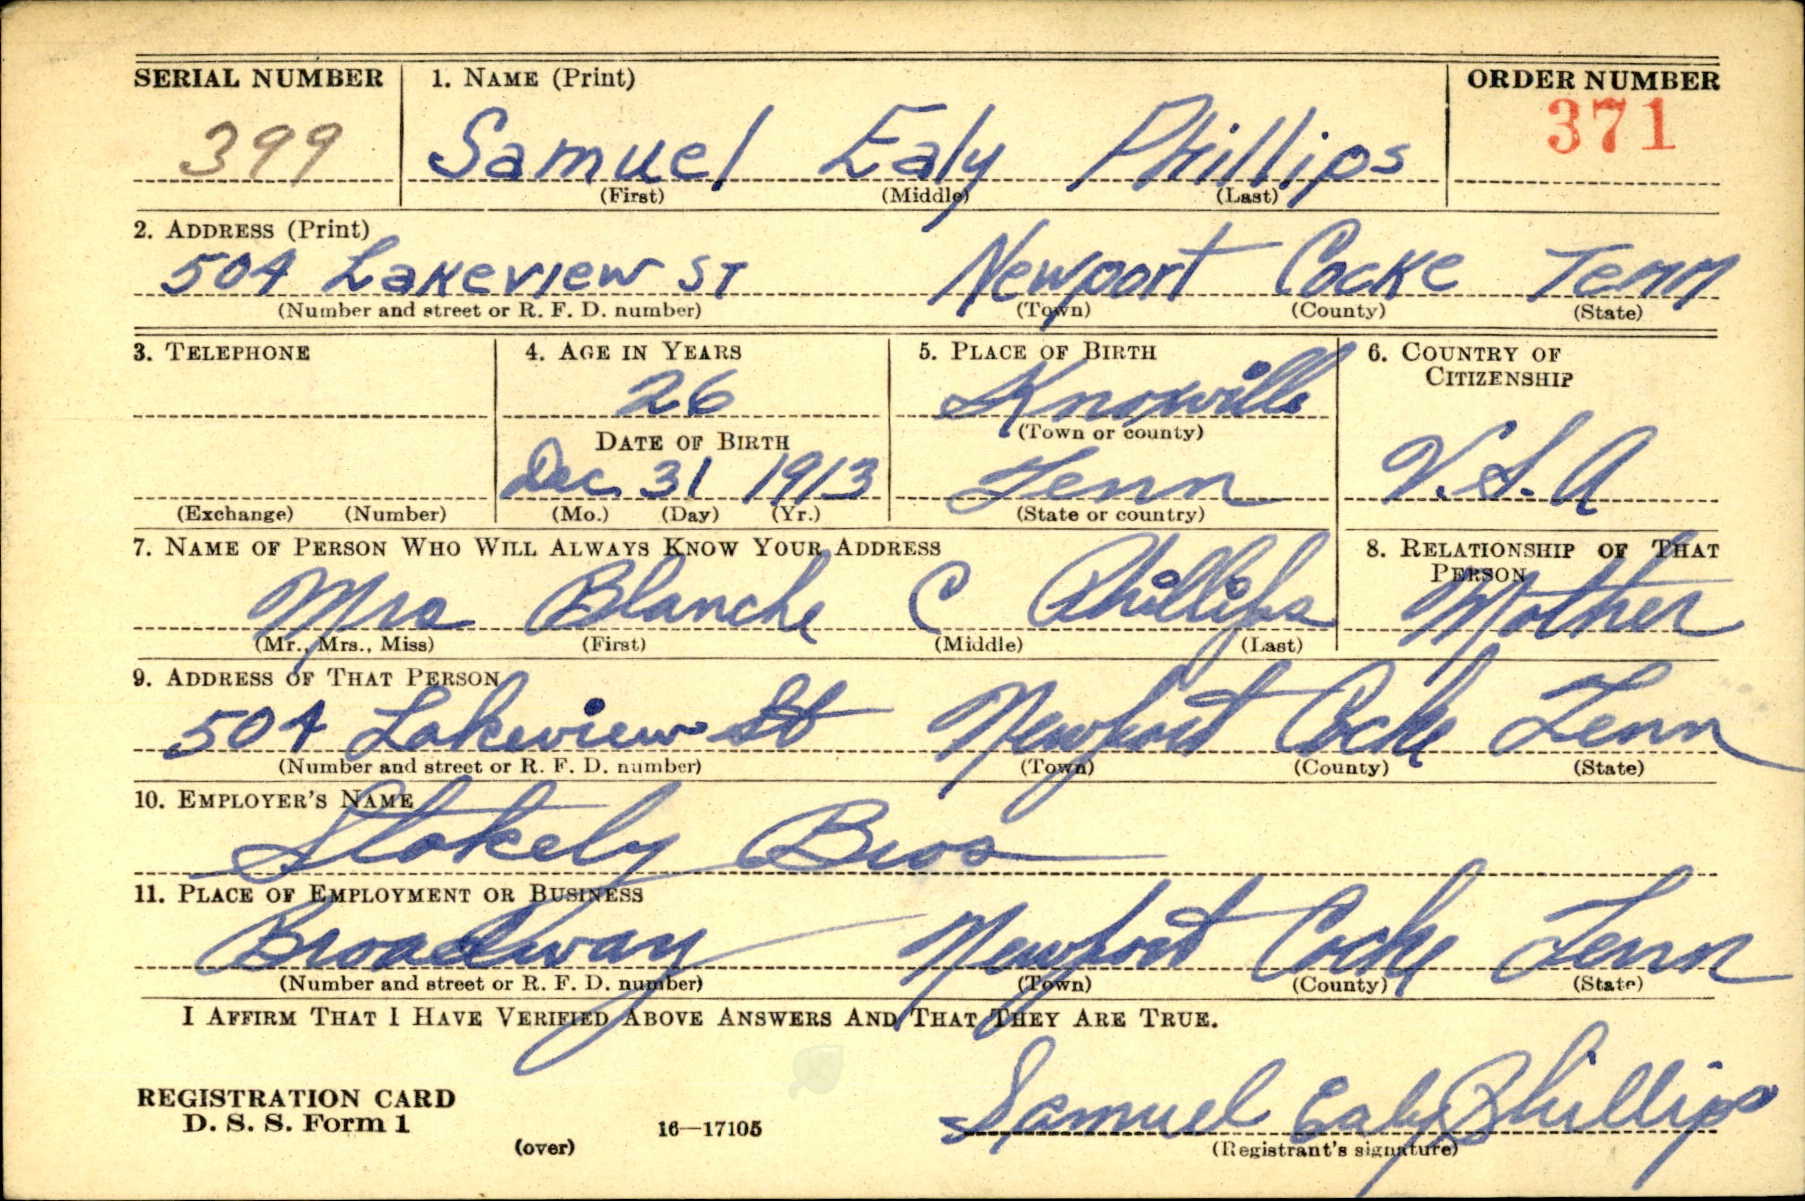 SERIAL NUMBER 1. NAME (Print) ORDER NUMBER
399 Samuel Ealy Phillips 371
(First) (Middle) (Last)
2. ADDRESS (Print)
504 Lakeview ST Newport Cocke Tenn
(Number and street or R. F. D. number) (Town) (County) (State)
3. TELEPHONE 4. AGE IN YEARS 5. PLACE OF BIRTH 6. COUNTRY OF CITIZENSHIP
26 Knoxville
DATE OF BIRTH (Town or county)
Dec 31 1913 Tenn U.S.A
(Exchange) (Number) (Mo.) (Day) (Yr.) (State or country)
7. NAME OF PERSON WHO WILL ALWAYS KNOW YOUR ADDRESS 8. RELATIONSHIP OF THAT PERSON
Mrs Blanche C Phillips Mother
(Mr., Mrs., Miss) (First) (Middle) (Last)
9. ADDRESS OF THAT PERSON
504 Lakeview St Newport Cocke Tenn
(Number and street or R. F. D. number) (Town) (County) (State)
10. EMPLOYER'S NAME
Stokely Bros
11. PLACE OF EMPLOYMENT OR BUSINESS
Broadway Newport Cocke Tenn
(Number and street or R. F. D. number) (Town) (County) (State)
I AFFIRM THAT I HAVE VERIFIED ABOVE ANSWERS AND THAT THEY ARE TRUE.
REGISTRATION CARD
D. S. S. Form 1 16—17105 Samuel Ealy Phillips
(over) (Registrant's signature)